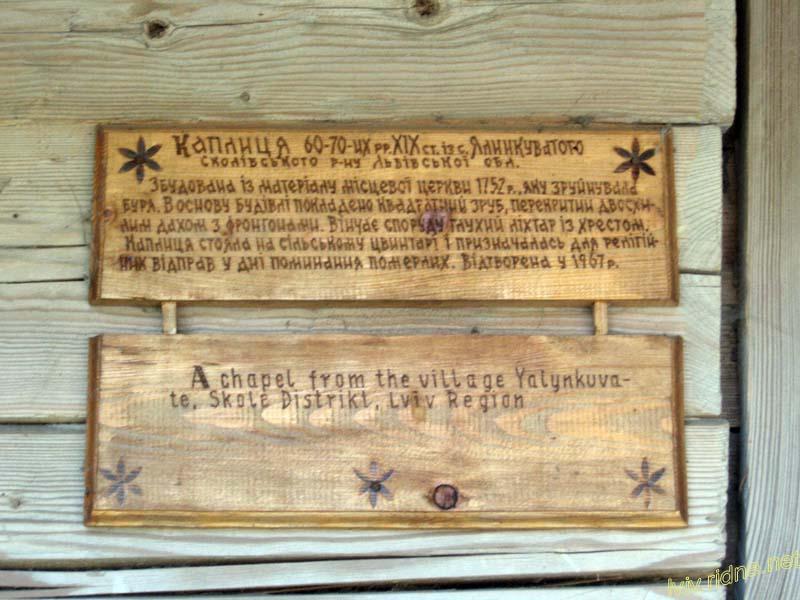 Каплиця 60-70-их рр. XIX ст. із с. Ялинкуватого
Сколівського р-ну Львівської обл.
Збудована із матеріалу місцевої церкви 1752 р., яку зруйнувала
буря. В основу будівлі покладено квадратний зруб, перекритий двосхи-
лим дахом з фронтонами. Вінчає споруду глухий ліхтар із хрестом.
Каплиця стояла на сільському цвинтарі і призначалась для релігій-
них відправ у дні поминання померлих. Відтворена у 1967 р.
A chapel from the village Yalynkuva-
te, Skole Distrikt, Lviv Region
lviv.ridne.net